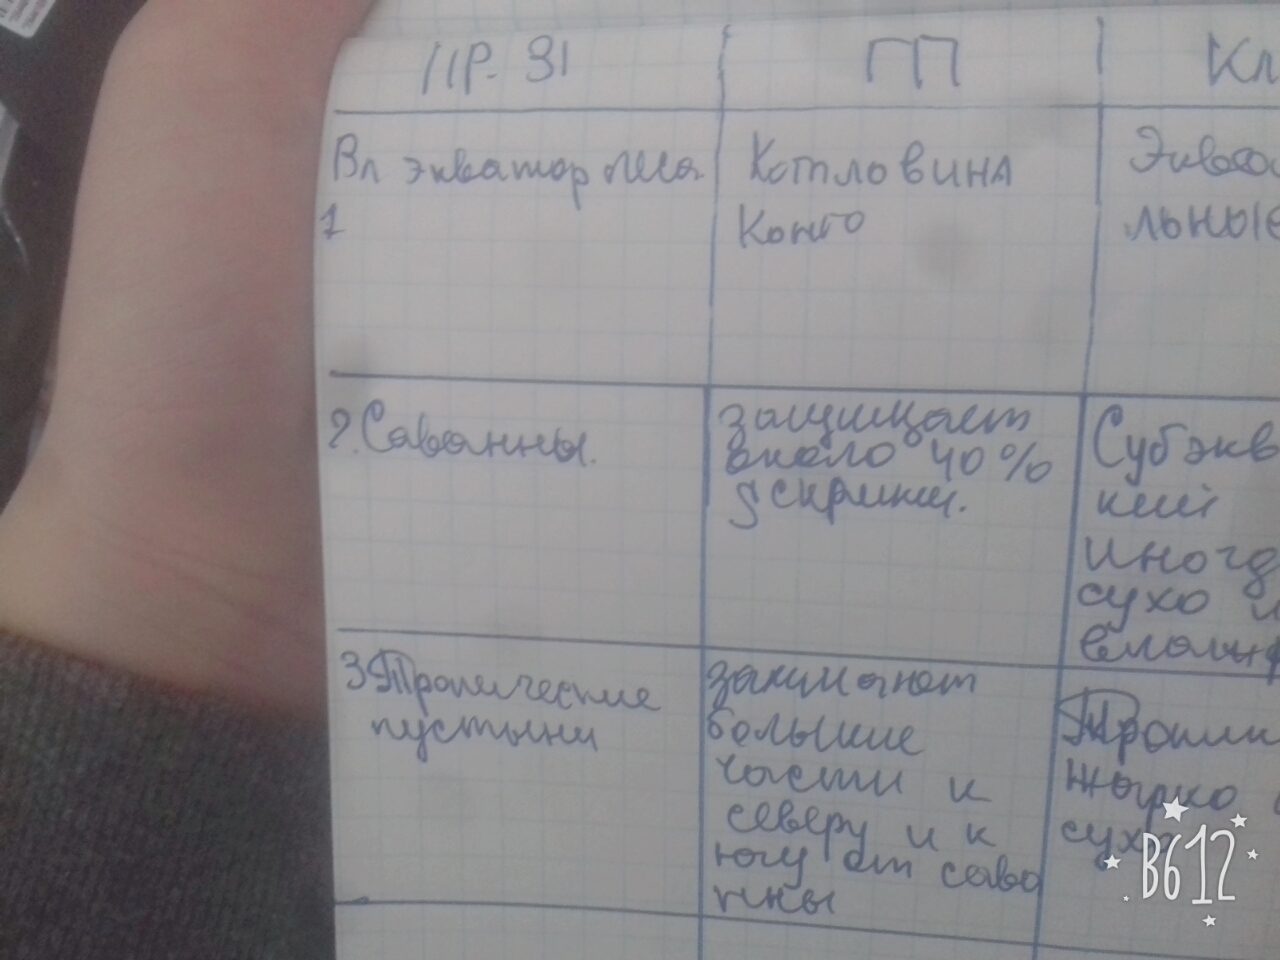 ПР. ЗІ
ГП
Кл
Вл экватор леса
1
Котловина
Конго
Эква
льные
2. Саванны.
защищает
около 40%
Субэкв
кий
иногд
сухо
3 Тропические
пустыни
занимают
большие
части к
северу и к
югу от сава
нны
Тропи
Жарко
сухо
B612